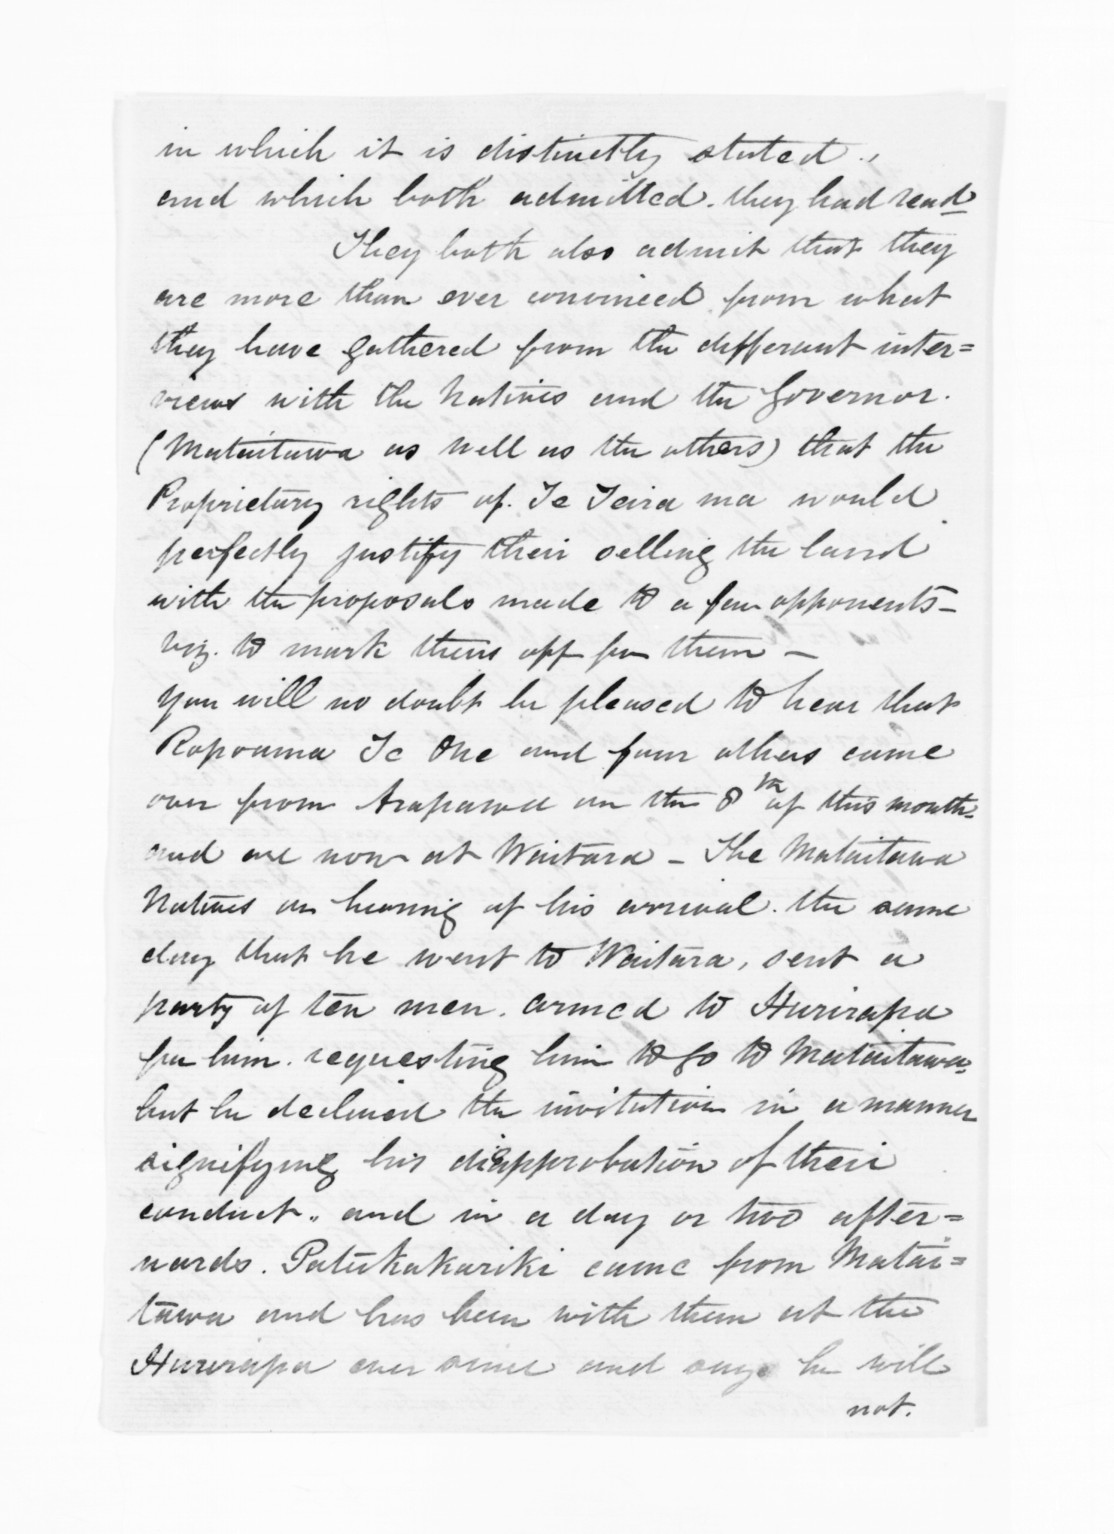 in which it is distinctly stated.,
and which both admitted. they had read
They both also admit that they
are more than ever convinced from what
they have gathered from the different inter=
views with the Natives and the Governor.
(Mataitawa as well as the others) that the
Proprietary rights of. Te Teira ma would
perfectly justify their selling the land
with the proposals made to a few opponents -
viz. to mark theirs off for them -
You will no doubt be pleased to hear that
Ropoama Te One and four others came
over from Arapawa on the 8th of this month.
and are now at Waitara - The Mataitawa
Natives on hearing of his arrival. the same
day that he went to Waitara, sent a
party of ten men. armed to Hurirapa
for him. requesting him to go to Mataitawa,
but he declined the invitation in a manner
signifying his disapprobation of their
conduct., and in a day or two after=
wards. Patukakariki came from Matai=
tawa and has been with them at the
Hurirapa ever since and says he will
not.